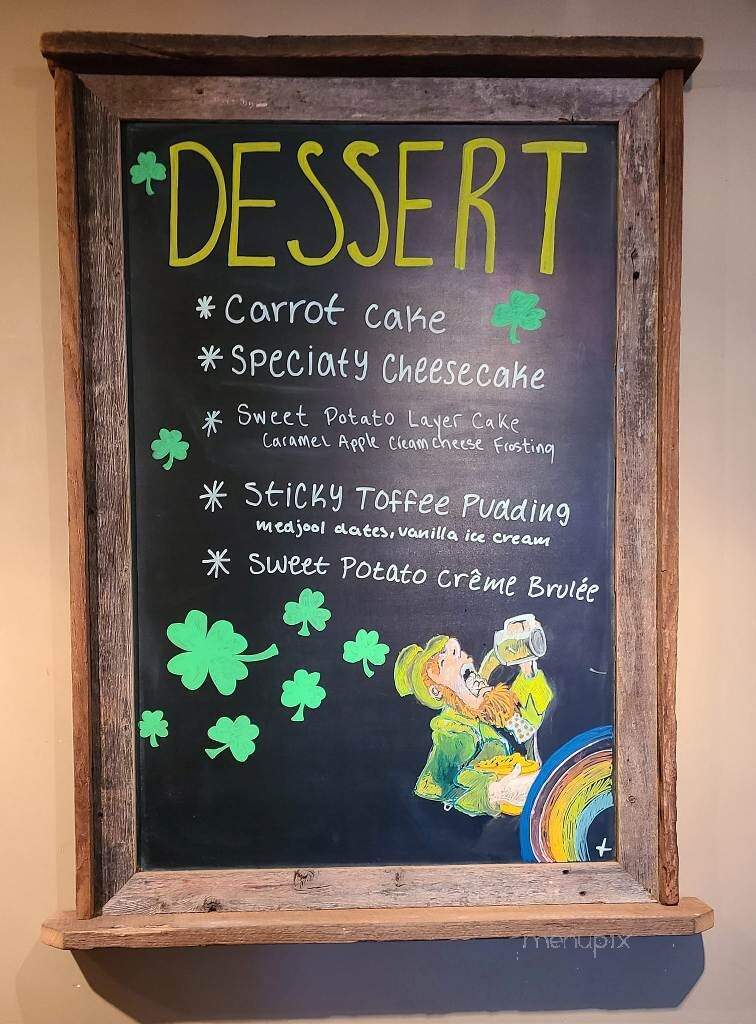 DESSERT
* Carrot Cake
* Speciaty Cheesecake
* Sweet Potato Layer Cake
Caramel Apple Creamcheese Frosting
* Sticky Toffee Pudding
medjool dates, vanilla ice cream
* Sweet Potato Crême Brulée
menupix